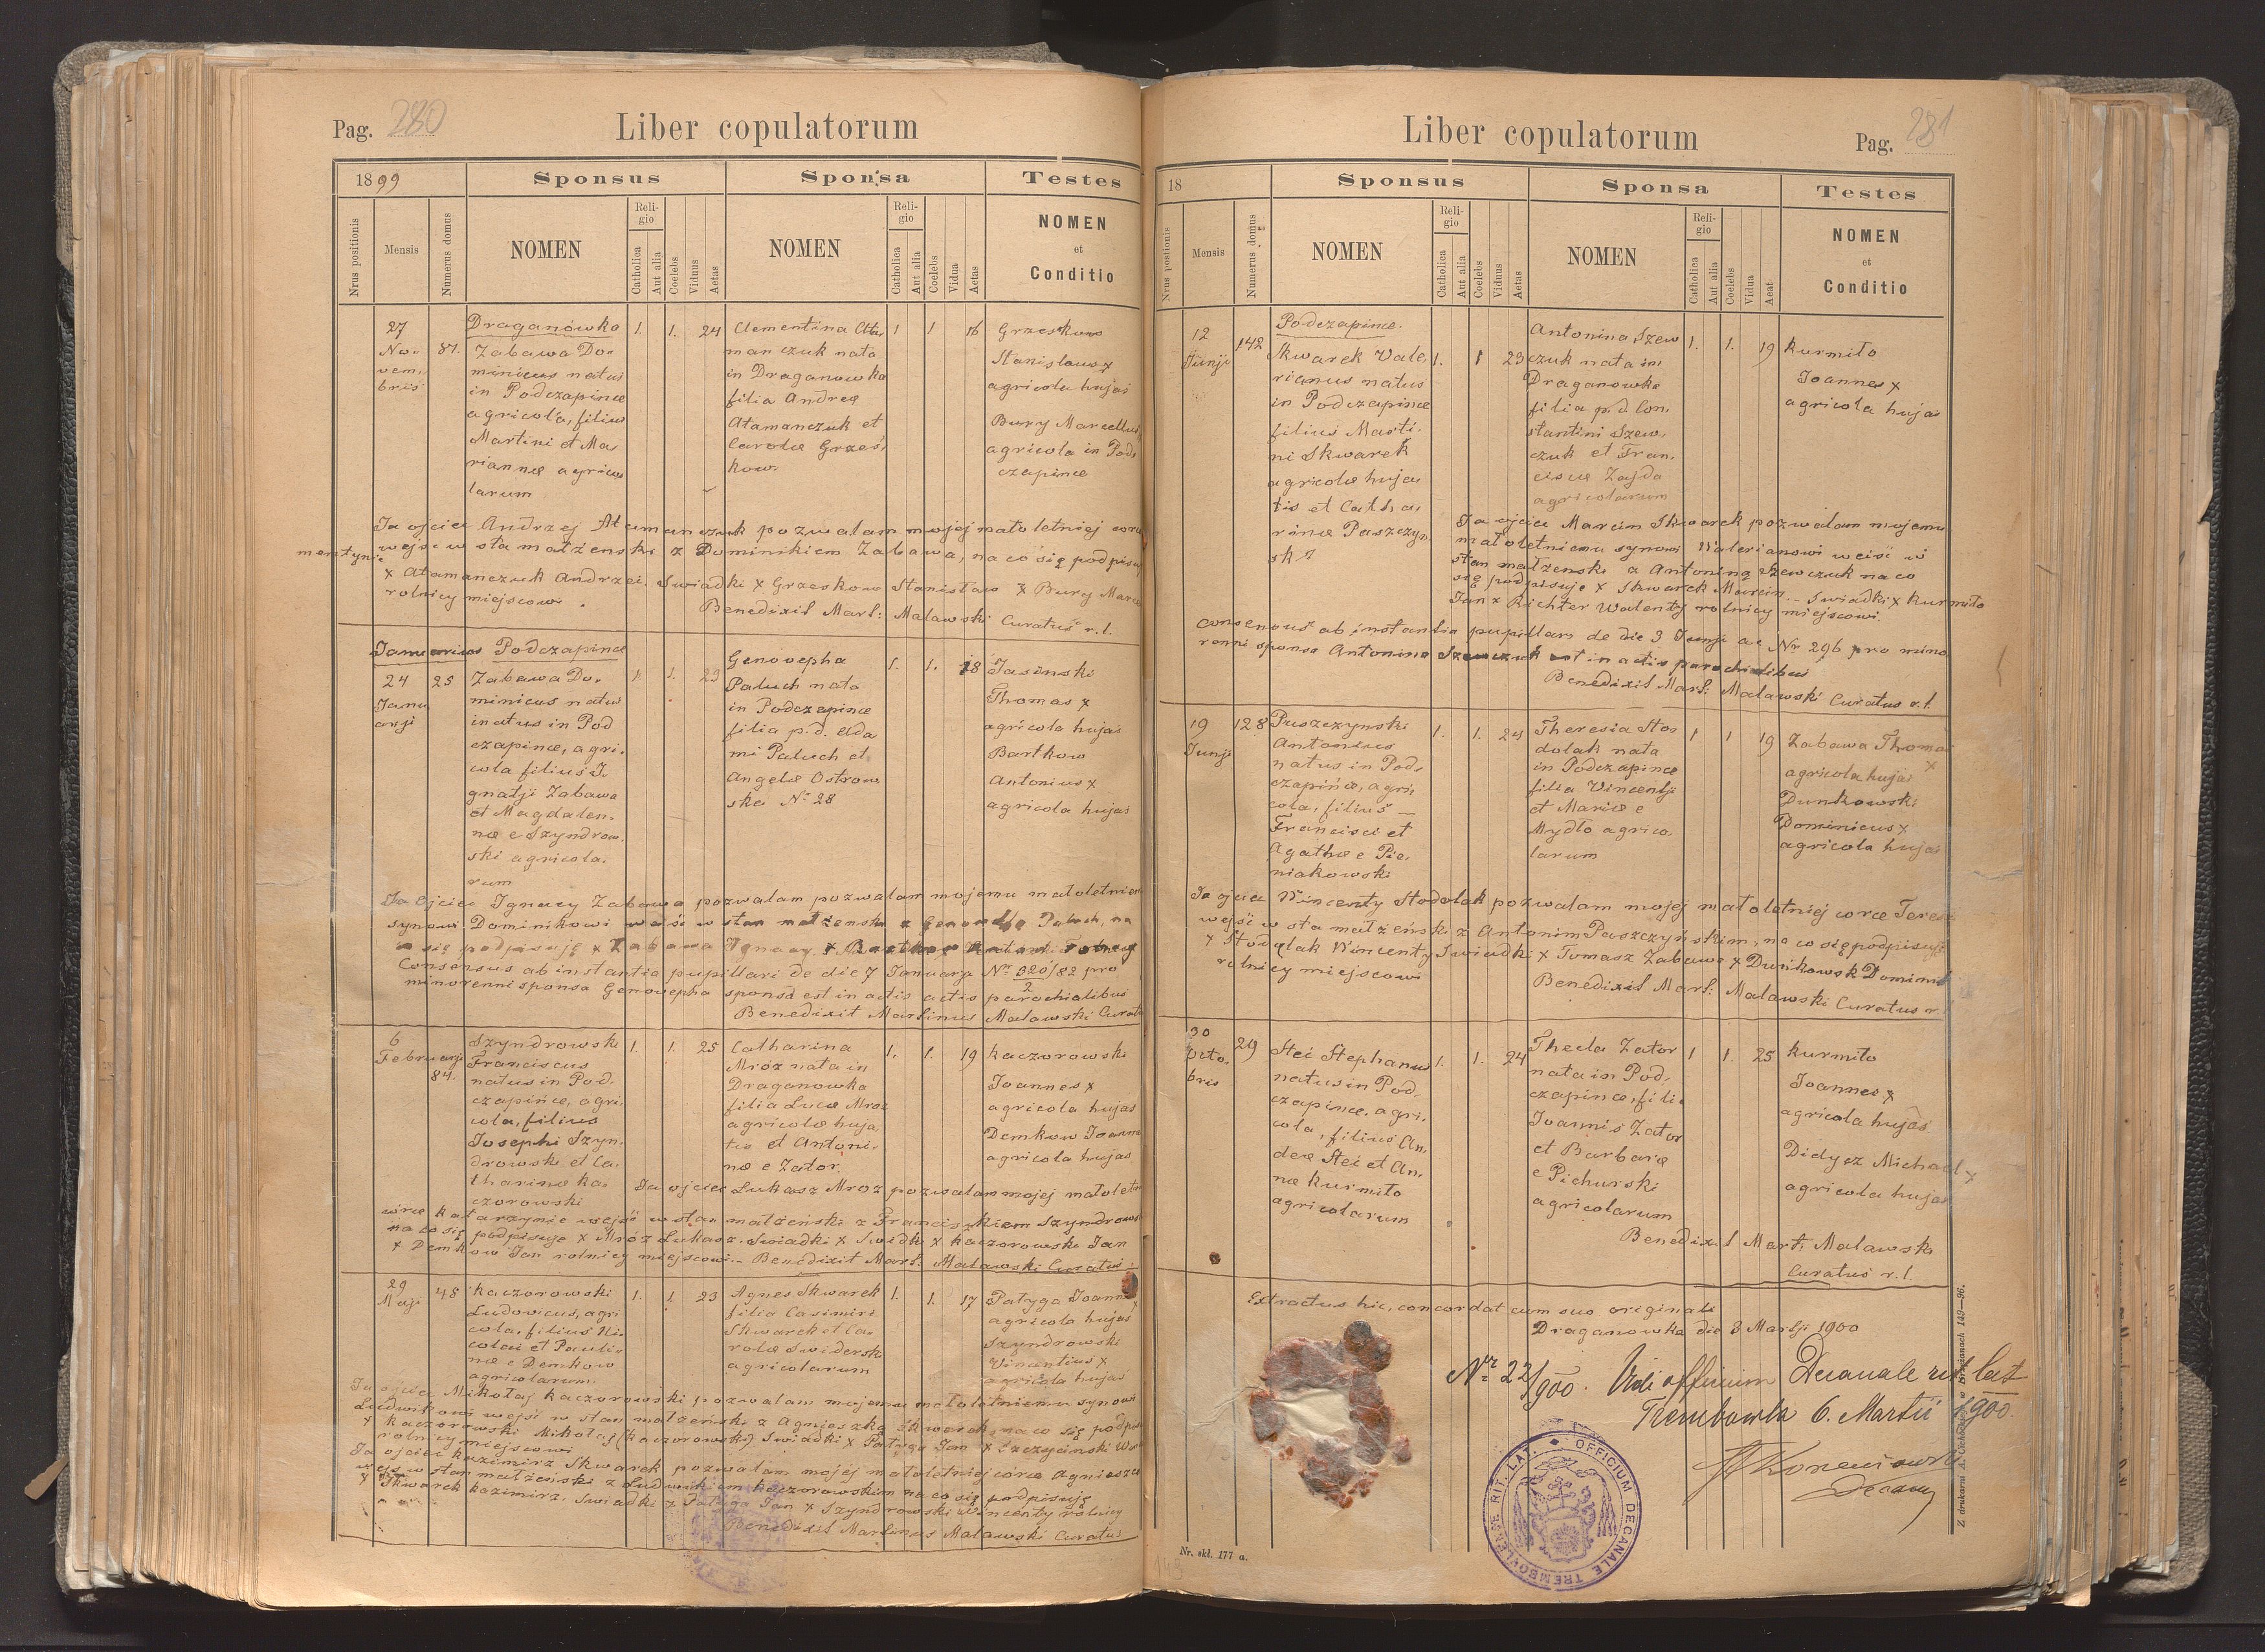 Pag. 280
Liber copulatorum
1899
Sponsus
Sponsa
Testes
Nrus positionis
Mensis
Numerus domus
NOMEN
Religio
Catholica
Aut alia
Coelebs
Viduus
Aetas
NOMEN
Religio
Catholica
Aut alia
Coelebs
Vidua
Aetas
NOMEN
et
Conditio
27
No-
vem,
bris
87.
Draganówka
Zabawa Do-
minicus natus
in Podczapince
agricola, filius
Martini et Ma
riannæ agrico
larum
1.
1.
24
Clementina Ata
manczuk nata
in Draganowka
filia Andreæ
Atamanczuk et
Carolæ Grześ,
kow.
1
1
16
Grzeskow
Stanislaus x
agricola hujas
Bury Marcellus
agricola in Pod,
czapince
Ja ojciec Andrzej Atamanczuk pozwalam mojej mało letniej
wejść w sta małżenski z Dominikiem Zabawa, na co się podpisu
x Atamanczuk Andrzej. Swiadki x Grzeskow Stanisław x Bury Marce
rolnicy miejscowi.
Benedixit Mart: Malawski Curatus r. l.
Januarius Podczapince
24
Janu
arji
25
Zabawa Do-
minicus natus
inatus in Pod
czapince, agri.
cola filius I.
gnatji Zabawa
et Magdalen.
næ e Szyndrow.
ski agricola.
rum
1.
1.
23
Genovepha
Paluch nata
in Podczapince
filia p. d. Ada
mi Paluch et
Angelæ Ostrow
ska No 28
1.
1.
18
Jasinski
Thomas x
agricola hujas
Bartkow
Antonius x
agricola hujas
Ja Ojciec Ignacy Zabawa pozwalam pozwalam mojemu małoletniem
synowi Dominikowi wejść w stan małżenski z Genowefą Paluch, na
się podpisuję x Zabawa Ignacy x
Consensus ab instantia pupillari de die 7 Januarji Nr 320/82 pro
2
minorenni sponsa Genovepha sponsa est in actis actis parochialibus
Benedixit Martinus Malawski Curat
6
Februarji
84.
Szyndrowski
Franciscus
natus in Pod.
czapince, agri,
cola, filius
Josephi Szyn.
drowski et Ca.
tharinæ Ka.
czorowski
1.
1.
25
Catharina
Mróz nata in
Draganowka
filia Lucæ Mroz
agricolæ huja
tis et Antoni-
næ e Zator.
1.
1.
19
Kaczorowski
Joannes x
agricola hujas
Demkow Joanne
agricola hujas
Ja ojciec Łukasz Mroz pozwalam mojej małoletn
córce Katarzynie wejść w stan małżeński z Franciszkiem Szyndrows
na co się podpisuje x Mróz Łukasz. Swiadki x Swidki x Kaczorowski Jan
x Demkow Jan rolnicy miejscowi.- Benedixit Mart. Malawski Curatus.
29
Maji
48
Kaczorowski
Ludovicus, agri
cola, filius Ni.
colai et Pauli.
næ e Demkow
agricolarum.
1.
1.
23
Agnes Skwarek
filia Casimiri
Skwarek et Ca.
rolæ Swidersk
agricolarum
1.
1.
17
Patyga Joanne
agricola hujas
Szyndrowski
Vincentius x
agricola hujas
Ja ojciec Mikołaj Kaczorowski pozwalam mojemu małoletniemu synowi
Ludwikowi wejść w stan małżeński z Agnieszką Skwarek, na co się podpis
x Kaczorowski Mikołaj (Kaczorowski) Swiadki x Patyga Jan x
rolnicy miejscowi
Ja ojciec Kazimirz Skwarek pozwalam mojéj małoletniej córce Agnieszce
wejs w stan małżeński z Ludwikiem Kaczorowskim na co się podpisuję
x Skwarek Kazimirz. Swiadki x Patyga Jan x Szyndrowski Wincenty rolnicy
Benedixit Martinus Malawski Curatus
Liber copulatorum
Pag. 281
18
Sponsus
Sponsa
Testes
Nrus positionis
Mensis
Numerus domus
NOMEN
Religio
Catholica
Aut alia
Coelebs
Viduus
Aetas
NOMEN
Religio
Catholica
Aut alia
Coelebs
Vidua
Aeat
NOMEN
et
Conditio
12
Junji
142
Podczapince.
Skwarek Vale,
rianus natus
in Podczapince
filius Marti.
ni Skwarek
agricolæ huja
tis et Catha,
rinæ Paszczyn
ski
1.
1
23
Antonina Szew
czuk nata in
Draganowka
filia p. d. Con,
stantini Szew,
czuk et Fran,
ciscæ Zajda
agricolarum
1.
1.
19
Kurmiło
Joannes x
agricola hujas
Ja ojciec Marcin Skwarek pozwalam mojemu
małoletniemu synowi Walerianowi wejść w
stan małżenski z Antoniną Szewczuk na co
się podpisuję x Skwarek Marcin.- Swiadki x Kurmiło
Jan x Richter Walenty rolnicy miejscowi.
Consensus ab instantia pupillari de die 3 Junji ac Nr 296 pro mino
renni sponsa Antonina Szewczuk est in actis parochialibus
Benedixit Mart: Malawski Curatus r. l.
19
Junji
128
Paszczynski
Antonius
natus in Pod,
czapińce, agri,
cola, filius
Francisci et
Agathæ e Pie.
niakowski
1.
1.
24
Theresia Sto
dolak nata
in Podczapince
filia Vincentji
et Mariæ e
Mydło agrico.
larum
1
1
19
Zabawa Thomas
x
agricola hujas
Dunkowski
Dominicus x
agricola hujas
Ja ojciec Wincenty Stodolak pozwalam mojej małoletniéj córce Teresi
wejść w sta małżeński z Antonim Paszczyńskim, na co się podpisuję
x Stodolak Wincenty Swiadki x Tomasz Zabawa x Dunkowski Dominik
rolnicy miejscowi
Benedixit Mart: Malawski Curatus r.
30
Octo.
bris
29
Steć Stephanus
natus in Pod,
czapince, agri,
cola, filius An,
dreæ Steć et An,
næ Kurmiło
agricolarum
1.
1.
24
Thecla Zator
nata in Pod,
czapince, filia
Joannis Zator
et Barbaræ
e Pichurski
agricolarum
1
1.
25
Kurmiło
Joannes x
agricola hujas
Didycz Michael x
agricola hujas
Benedixit Mart. Malawski
Curatus r. l.
Extractus hic, concordat cum suo originali
Draganowka die 3 Martji 1900
Nr 22/900. Vidi officium Decanale rit lat
Trembowla 6. Martii 1900.
Decanus
OFFICIUM DECANALE TREMBOVLENSE RIT. LAT.
Nr. skł. 177 a.